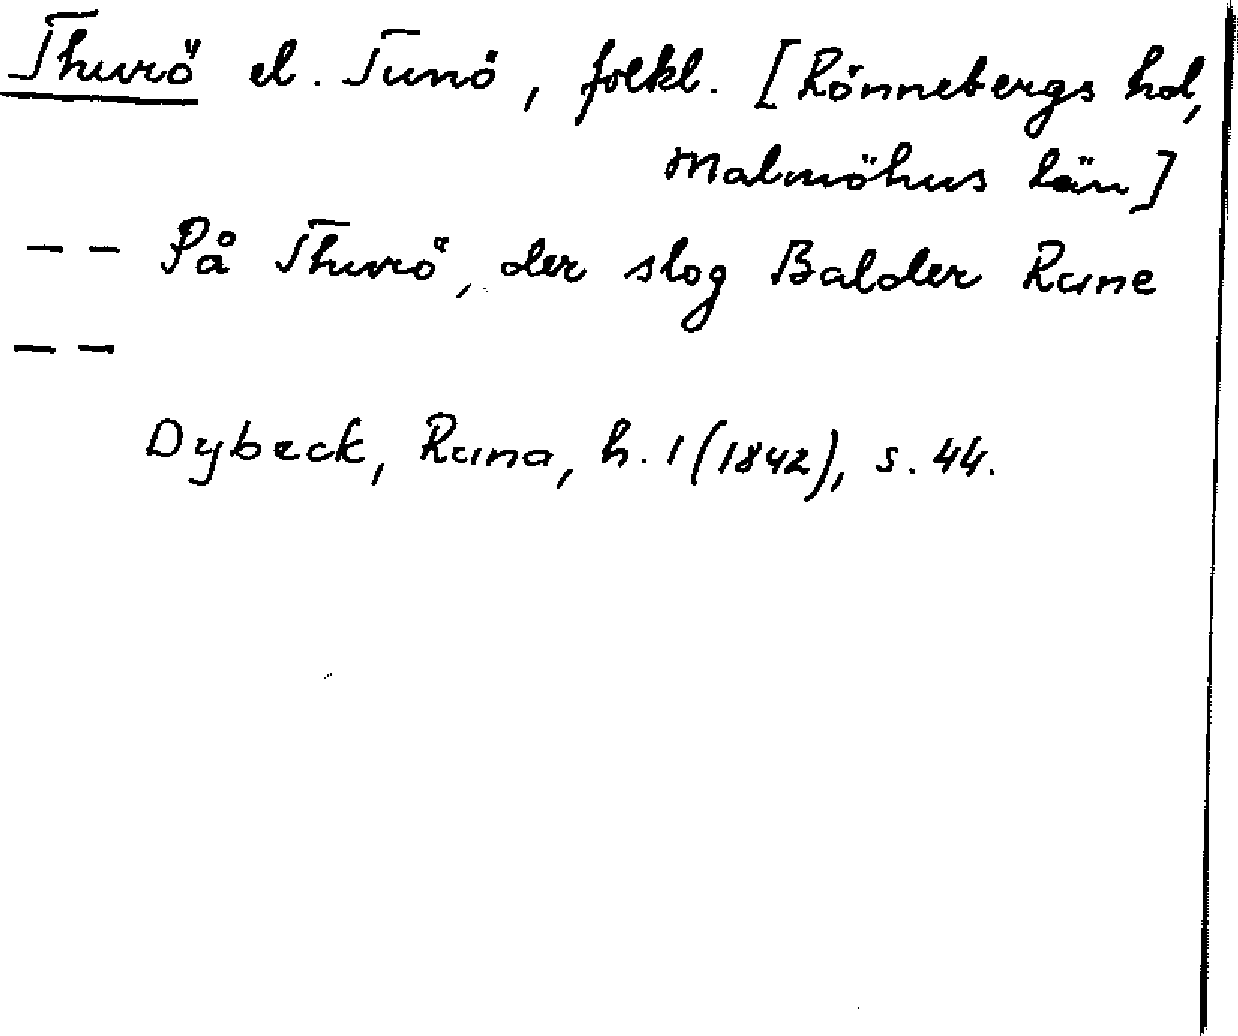 Thurö el. Tunö, folkl. [Rönnebergs hd,
Malmöhus län]
-- På Thurö, der slog Balder Rune
--
Dybeck, Runa, h. 1 (1842), s. 44.